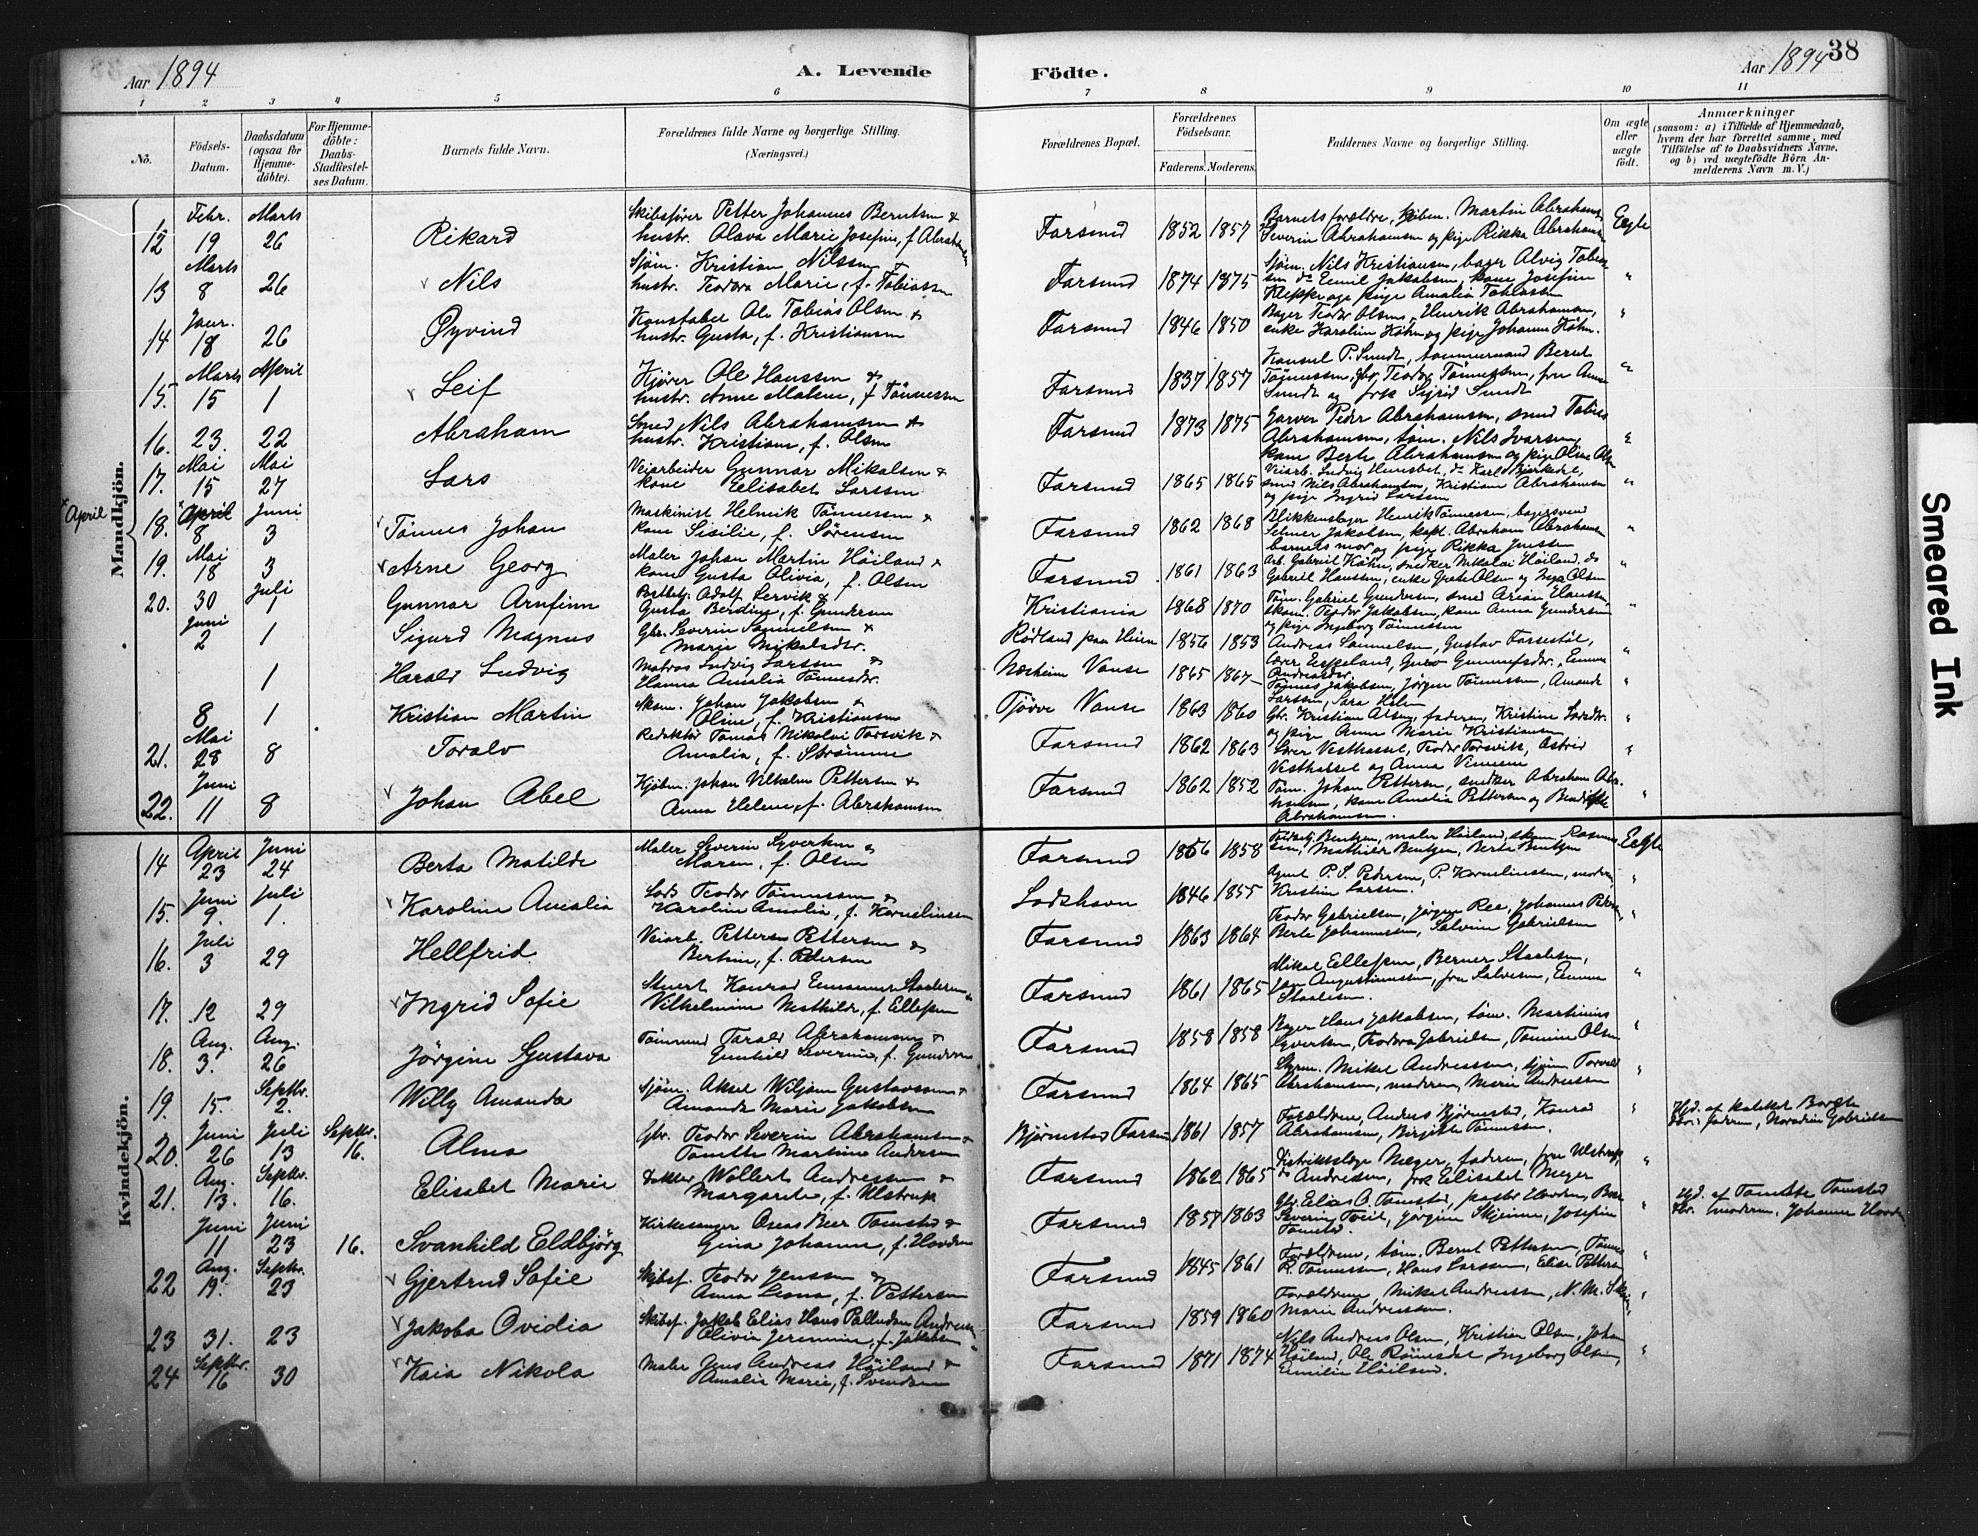 Aar 1894
A. Levende Födte.
Aar 1894
38
1 2 3 4 5 6 7 8 9 10 11
No.
Födsels-Datum.
Daabsdatum (ogsaa for Hjemme-döbte).
For Hjemme-döbte: Daabs-Stadfæstel-ses Datum.
Barnets fulde Navn.
Forældrenes fulde Navne og borgerlige Stilling. (Næringsvei.)
Forældrenes Bopæl.
Forældrenes Födselsaar.
Faderens. Moderens.
Faddernes Navne og borgerlige Stilling.
Om ægte eller uægte födt.
Anmærkninger
(saasom: a) i Tilfælde af Hjemmedaab, hvem der har forrettet samme, med Tilföielse af to Daabsvidners Navne, og b) ved uægtefödte Börn An-melderens Navn m. V.)
Mandkjön.
12 Febr. 19 Marts 26 Rikard
Skibsfører Petter Johannes Berntsen &
hustr. Olava Marie Josefine, f. Abrahamsen
Farsund 1852 1857
Barnets forældre, Martin Abrahamsen
Severin Abrahamsen og pige Rikka Abrahamsen
Eegte
13 Marts 8 26 Nils
Sjøm. Kristian Nilssen &
hustr. Teodora Marie, f. Tobiassen
Farsund 1874 1875
Sjøm. Nils Kristiansen, bager Alvig Tobias-
sen, do Emil Jakobsen, kone Josefine
Kleppe og pige Amalia Tobiassen
14 Janur. 18 26 Øyvind
Konstabel Ole Tobias Olsen &
hustr. Gusta, f. Kristiansen
Farsund 1846 1850
Bager Teodor Olsen, Henrik Abrahamsen,
enke Karoline Høhn og pige Johanne Høhn.
15. Marts 15 April 1 Leif
Ole Hanssen &
hustr. Anne Malene, f. Tönnessen
Farsund 1837 1857
Konsul P. Sundt, tømmermand Bernt
Tönnessen, Teodor Tönnessen, fru Anna
Sundt og frk Sigrid Sundt
16. 23. 22 Abraham
Smed Nils Abrahamsen &
hustr. Kristiane, f. Olsen
Farsund 1873 1875
Garver Peder Abrahamsen, smed Tobias
Abrahamsen, tøm. Nils Ivarsen,
kone Berte Abrahamsen og pige Oline Olsen
17. Mai 15 Mai 27 Lars
Veiarbeider Gunnar Mikalsen &
kone Elisabet Larssen
Farsund 1865 1865
Veiarb. Ludvig Hunsbet, do Karl Bjerkdal,
smed Nils Abrahamsen, Kristiane Abrahamsen
og pige Ingrid Larssen
April
18. April 8 Juni 3 Tönnes Johan
Maskinist Helmik Tönnessen &
kone Sisilie, f. Sørensen
Farsund 1862 1868
Blikkenslager Henrik Tönnessen, bagersvend
Selmer Jakobsen, kapt. Abraham Abrahamsen
barnets mor og pige Rikka Jenssen
19. Mai 18 3 Arne Georg
Maler Johan Martin Höiland &
kone Gusta Olivia, f. Olsen
Farsund 1861 1863
Arb. Gabriel Høhn, snedker Nikolai Höiland, do
Gabriel Hanssen, enke Grete Olsen og Inga Olsen
20. 30 Juli 1 Gunnar Arnfinn
Adolf Lervik &
Gusta Berdine, f. Gundersen
Kristiania 1868 1870
Tøm. Gabriel Gundersen, smed Adrian Hanssen,
skom. Teodor Jakobsen, kone Anna Gundersen
og pige Ingeborg Tönnessen
Juni 2 1 Sigurd Magnus
Gbr. Severin Samuelsen &
Marie Mikalsdtr.
Rødland paa Herun 1856 1853
Andreas Samuelsen, Gustav Farsestøl,
1 Harald Ludvig
Matros Ludvig Larssen &
Hanna Amalia Tönnesdtr.
Næsheim Vanse 1865 1867
Tönnes Jakobsen, Jörgen Tönnessen, Amanda
Larssen, Sara
8 1 Kristian Martin
Skom. Johan Jakobsen &
Oline, f. Kristiansen
Tjövve Vanse 1863 1860
Gbr. Kristian Olsen, faderen, Kristine
og pige Anne Marie Kristiansen
21. Mai 28 8 Toralv
Redaktör Tomas Nikolai Torsvik &
Amalia, f. Strømme
Farsund 1862 1863
Lærer Vesthassel, Teodor Torsvik, Astrid
Vesthassel og Anna
22. Juni 11 8 Johan Abel
Kjøbm. Johan Vilhelm Pettersen &
Anna Helene, f. Abrahamsen
Farsund 1862 1852
Tøm. Johan Pettersen, snedker Abraham Abra-
hamsen, kone Amalia Pettersen og Bendikte
Abrahamsen.
Kvindekjön.
14 April 23 Juni 24 Berta Matilde
Maler Severin Syvertsen &
Maren, f. Olsen
Farsund 1856 1858
Bentzen, maler Höiland, skom. Rasmus-
sen, Mathilde Bentzen, Berta Bentzen
Eegte
15. Juni 9. Juli 1. Karoline Amalia
Lods Teodor Tönnessen &
Karoline Amalia, f. Korneliussen
Lodshavn 1846 1855
Agent P. S. Pedersen, P. Korneliussen, moderen,
Kristine Larssen.
16. Juli 3 29 Hellfrid
Veiarb. Petter Pettersen &
Bertine, f. Pedersen
Farsund 1863 1864
Teodor Gabrielsen, Jörgen Ree, Johannes Petersen,
Berte Johannessen, Salvine Gabrielsen
17. 12 29 Ingrid Sofie
Stuert Konrad Emanuel Staalesen &
Vilhelmine Mathilde, f. Ellefsen
Farsund 1861 1865
Mikal Ellefsen, Berner Staalesen,
Augustinussen, fru Salvesen, Emma
Staalesen.
18. Aug. 3. Aug. 26 Jörgine Gustava
Tömmermd Tarald Abrahamsen &
Gunhild Severine, f. Gundersen
Farsund 1858 1858
Bager Hans Jakobsen, tøm. Martinius
Syvertsen, Teodora Gabrielsen, Tomine Olsen
19. 15. Septbr. 2. Willy Amanda
Sjøm. Aksel Wiljam Gustavssen &
Amanda Marie Jakobsen
Farsund 1864 1865
Styrm. Mikal Andreassen, sjøm. Torvald
Abrahamsen, moderen, Marie Andreassen
20. Juni 26 Juli 13 Septbr. 16. Alma
Gbr. Teodor Severin Abrahamsen &
Tomette Martine Andersen
Bjørnestad Farsund 1861 1857
Forældrene, Anders Bjørnestad, Konrad
Abrahamsen, Birgitte Tönnessen.
Hjd. af kateket Borgte
tbr.: faderen, Gabrielsen
21. Aug. 13. Septbr. 16. Elisabet Marie
Doktor Wollert Andressen &
Margarite, f. Ulstrup
Farsund 1862 1865
Distriktslæge Meyer, faderen, fru Ulstrup,
do Andresen, frk Elisabet Meyer
Juni 11 Juni 23 16. Svanhild Eldbjörg
Kirkesanger Oseas Beer Tomstad &
Gina Johanne, f. Hovden
Farsund 1857 1863
Gbr. Elias O. Tomstad, pastor Hovden,
Severine Tveit, Jörgine Skjeime, Josefine
Tomstad.
Hjd. af Tomstad
tbr. moderen, Johanne Hovden
22 Aug. 19. Septbr. 23 Gjertrud Sofie
Skibsf. Teodor Jenssen &
Anna Leona, f. Pettersen
Farsund 1845 1861
Forældrene, tøm. Bernt Pettersen, Tönnes
R. Tönnessen, Hans Larssen, Elise Pettersen
23 31. 23 Jakoba Ovidia
Skibsf. Jakob Elias Hans Palludan Andreassen
Olivia Jeremine, f. Jakobsen
Farsund 1859 1860
Forældrene, Mikal Andreassen, N. M.
Marie Andreassen.
24 Septbr. 16 30 Kaia Nikola
Maler Jens Andreas Höiland &
Amalia Marie, f. Svendsen
Farsund 1871 1874
Nils Andreas Olsen, Kristian Olsen, Johan
Höiland, Ole Römesdal, Ingeborg Olsen,
Emilie Höiland.
Smeared Ink